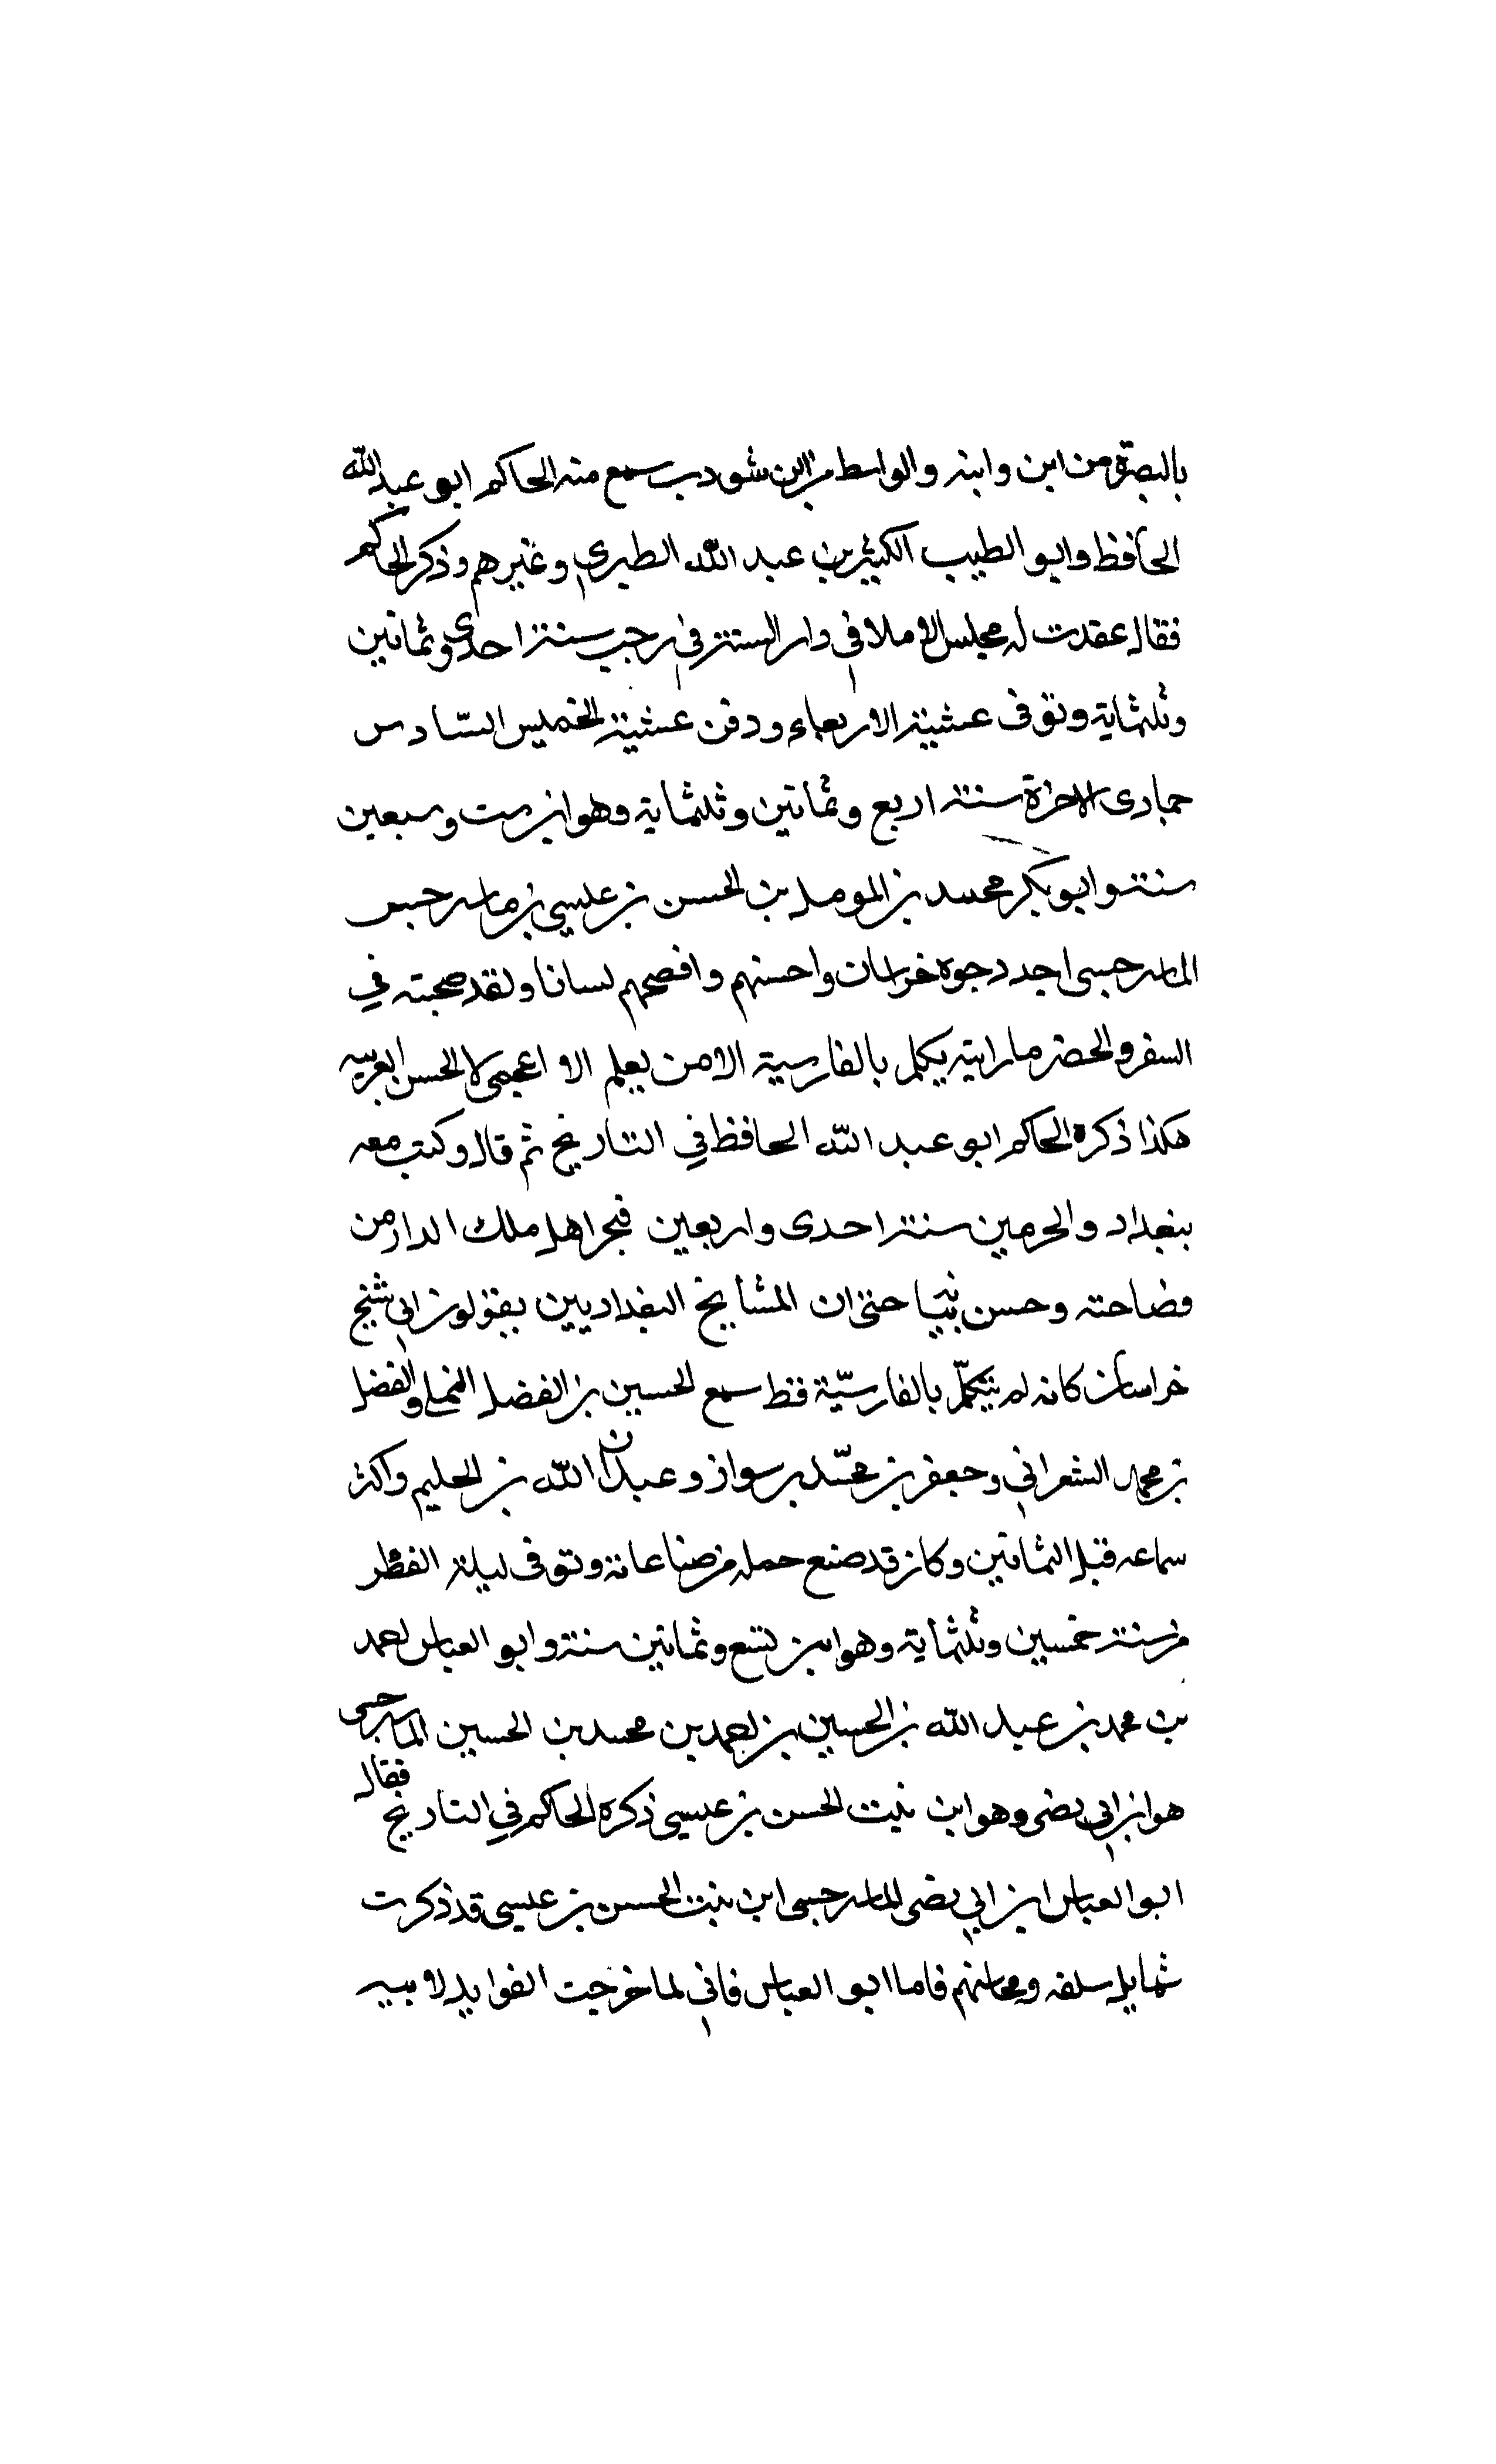 بالبصرة من ابن وابنه والواسط من ابن شودب سمع منه الحاكم ابو عبد الله
الحافظ وابو الطيب الكبير بن عبد الله الطبري وغيرهم وذكر الحاكم
فقال عقدت له مجلس الاملا في دار السنة في رجب سنة احدى وثمانين
وثلثماية وتوفى عشية الاربعاء ودفن عشية الخميس السّادس
جمادى الاخرة سنة اربع وثمانين وثلثماية وهو ابن ست وسبعين
سنة وابو بكر محمد بن المومل بن الحسن بن عيسي بن ماسرجس
الماسرجسى احد وجوه خراسان واحسنهم وافصحهم لسانا ولقد صحبته في
السفر والحضر ما رايته يكلم بالفارسية الا من يعلم الا اعجمى لا الحسن العربيه
هكذا ذكره الحاكم ابو عبد الله الحافظ في التاريخ ثم قال وكتب معه
ببغداد والحرمين سنة احدى واربعين فجر اهل ملك الدار من
فصاحته وحسن بيتا حتى ان المشايخ البغداديين يقولون ابي شيخ
خراسان كانه لم يتكلّم بالفارسيّة قط سمع الحسين بن الفضل البجلي والفضل
بن محمد الشعراني وجعفر بن محمّد بن سوار وعبدان الله بن الحليم واكثر
سماعه قبل الثمانين وكان قد صنع حمله من صناعاته وتوفى ليلة الفطر
من سنة خمسين وثلثماية وهو ابن تسع وثمانين سنة وابو العباس احمد
بن محمد بن عبد الله بن الحسين بن احمد بن محمد بن الحسين الماسرجسى
هو ابن ابي نصر وهو ابن بنت الحسن بن عيسى ذكره الحاكم في التاريخ فقال
ابو العباس ابن ابي نصر الماسرجسى ابن بنت الحسن بن عيسى قد ذكرت
شمايل سلفه ومحاسنهم فاما ابو العباس فاني لما خرجت الفوايد لا بيه